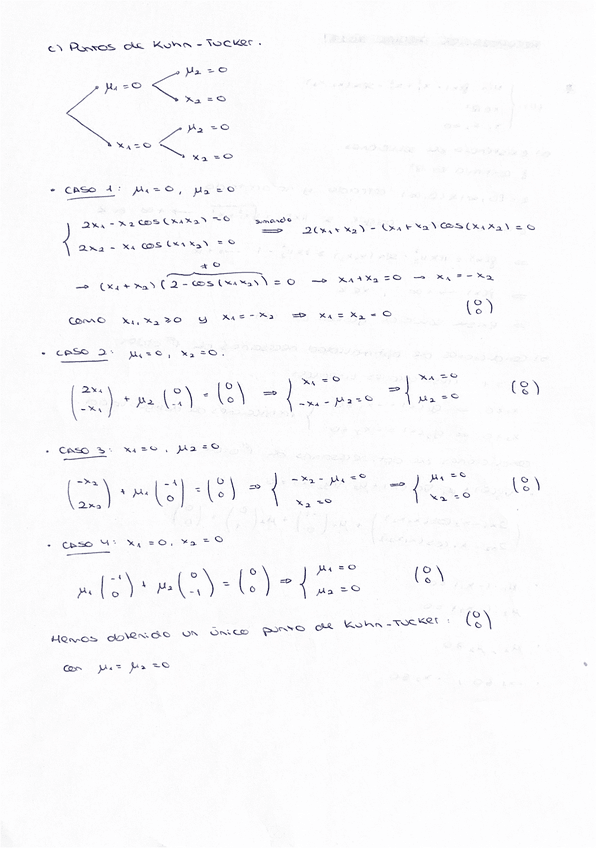 c) Puntos de Kuhn-Tucker.
μ1 = 0
μ2 = 0
x2 = 0
x1 = 0
μ2 = 0
x2 = 0
• CASO 1: μ1 = 0, μ2 = 0
{ 2x1 - x2 cos(x1x2) = 0
2x2 - x1 cos(x1x2) = 0 sumando ⇒ 2(x1+x2) - (x1+x2) cos(x1x2) = 0
≠0
→ (x1+x2) (2 - cos(x1x2)) = 0 → x1+x2 = 0 → x1 = -x2
como x1, x2 ≥ 0 y x1 = -x2 ⇒ x1 = x2 = 0 (0 0)
• CASO 2: μ1 = 0, x2 = 0.
(2x1 -x1) + μ2 (0 -1) = (0 0) ⇒ { x1 = 0 -x1 - μ2 = 0 ⇒ { x1 = 0 μ2 = 0 (0 0)
• CASO 3: x1 = 0, μ2 = 0
(-x2 2x2) + μ1 (-1 0) = (0 0) ⇒ { -x2 - μ1 = 0 x2 = 0 ⇒ { μ1 = 0 x2 = 0 (0 0)
• CASO 4: x1 = 0, x2 = 0
μ1 (-1 0) + μ2 (0 -1) = (0 0) ⇒ { μ1 = 0 μ2 = 0 (0 0)
Hemos obtenido un único punto de Kuhn-Tucker: (0 0)
con μ1 = μ2 = 0